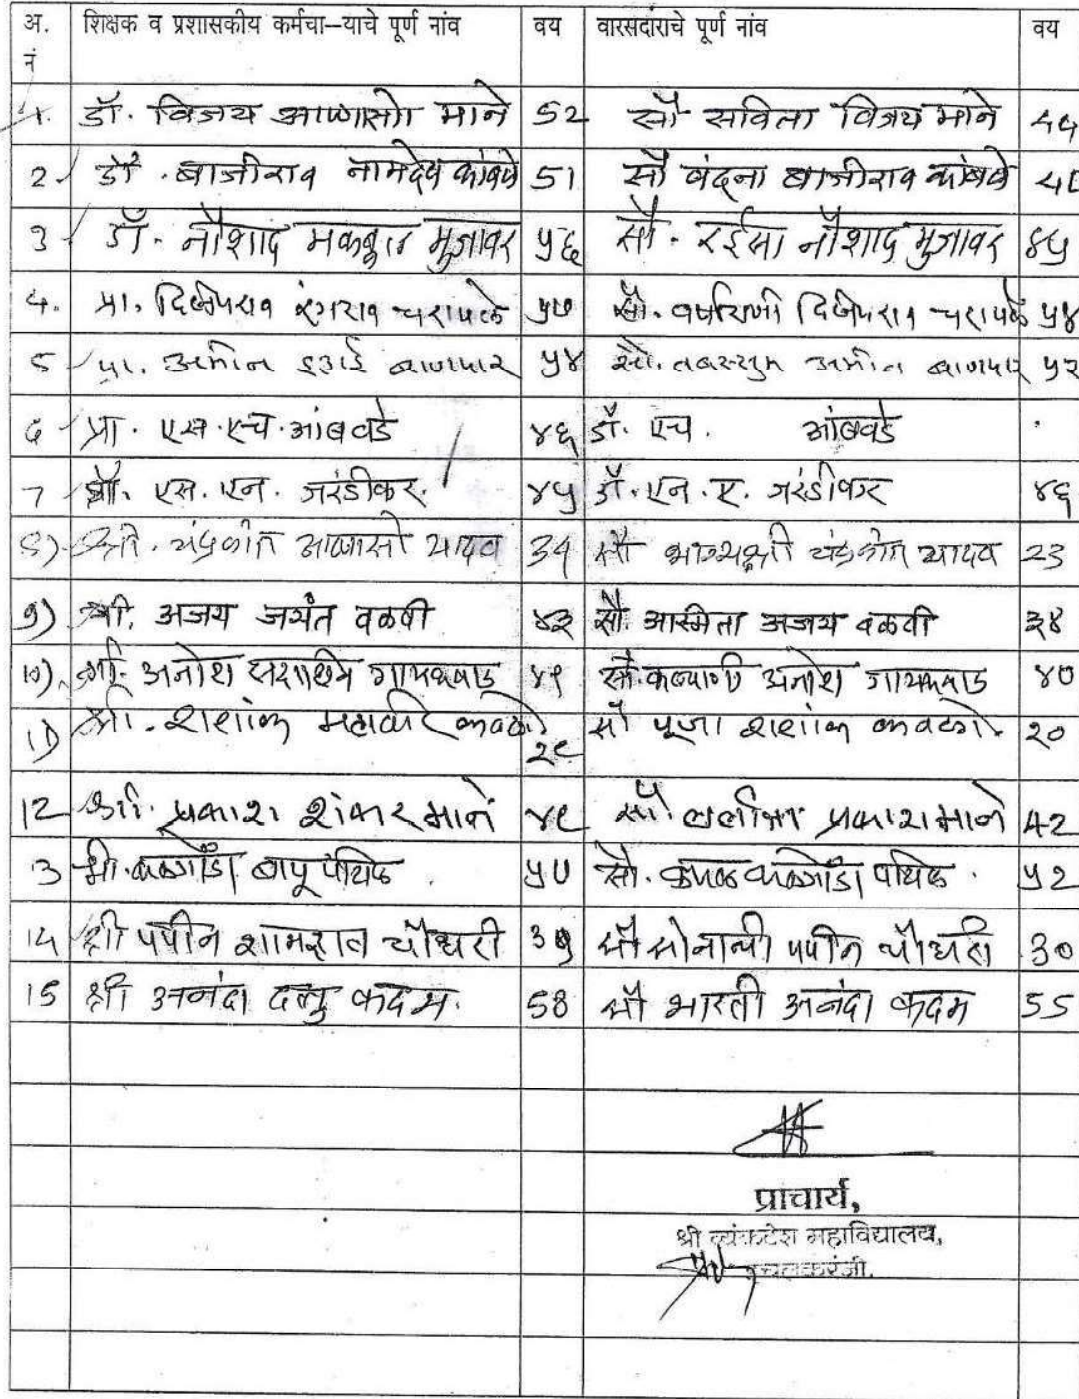 अ. नं शिक्षक व प्रशासकीय कर्मचा–याचे पूर्ण नांव वय वारसदाराचे पूर्ण नांव वय
1. डॉ. विजय आण्णासो माने 52 सौ सविता विजय माने
2 डॉ. बाजीराव नामदेव कांबळे 51 सौ वंदना बाजीराव कांबळे
3 डॉ. नौशाद मकबूल मुजावर ५६ सौ. रईसा नौशाद मुजावर ४५
4. प्रा. दिलीपराव रंगराव चरापले ५७ सौ. दिलीपराव चरापले ५४
5 प्रा. अमीन बाणदार ५४ सौ. तबस्सुम अमीन बाणदार ५२
6 प्रा. एस.एच.आंबवडे ४६ डॉ. एच. आंबवडे
7 प्रा. एस. एन. जरंडीकर. ४५ डॉ. एन. ए. जरंडीकर ४६
8) श्री. चंद्रकांत आण्णासो यादव 31 सौ भाग्यश्री चंद्रकांत यादव 23
9) श्री. अजय जयंत वळवी ४३ सौ. अस्मिता अजय वळवी ३४
10) श्री. अनोश गायकवाड ४९ सौ. कल्याणी अनोश गायकवाड ४०
11) श्री. शशांक महावीर २९ सौ पूजा शशांक २०
12 श्री. प्रकाश शंकर माने ४९ सौ. प्रकाश माने 42
13 श्री. कळगोंडा बापू पाटील. ५७ सौ. कमळ कळगोंडा पाटील. ५२
14 श्री पपीन शामराव चौधरी 39 सौ सोनाली पपीन चौधरी 30
15 श्री आनंदा दत्तु कदम. 58 सौ भारती आनंदा कदम 55
प्राचार्य,
श्री व्यंकटेश महाविद्यालय,
इचलकरंजी.